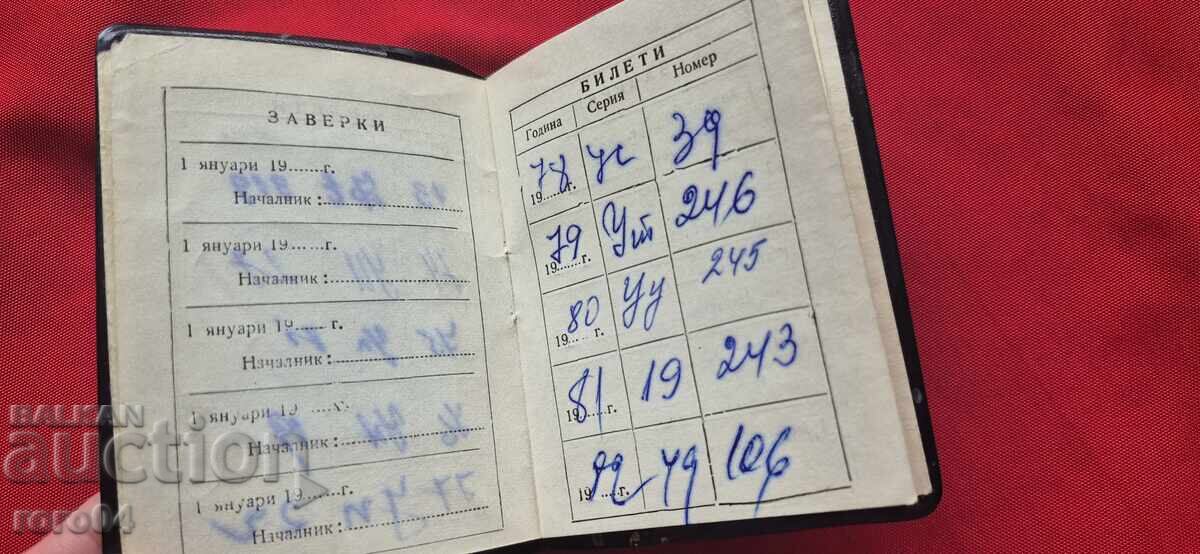 ЗАВЕРКИ
1 януари 19......г.
Началник:
1 януари 19......г.
Началник:
1 януари 19......г.
Началник:
1 януари 19......г.
Началник:
1 януари 19......г.
Началник:
БИЛЕТИ
Година Серия Номер
1978 г. Ус 39
1979 г. Ут 246
1980 г. Уу 245
1981 г. 19 243
19 г. 106
BALKAN
auction
roro04